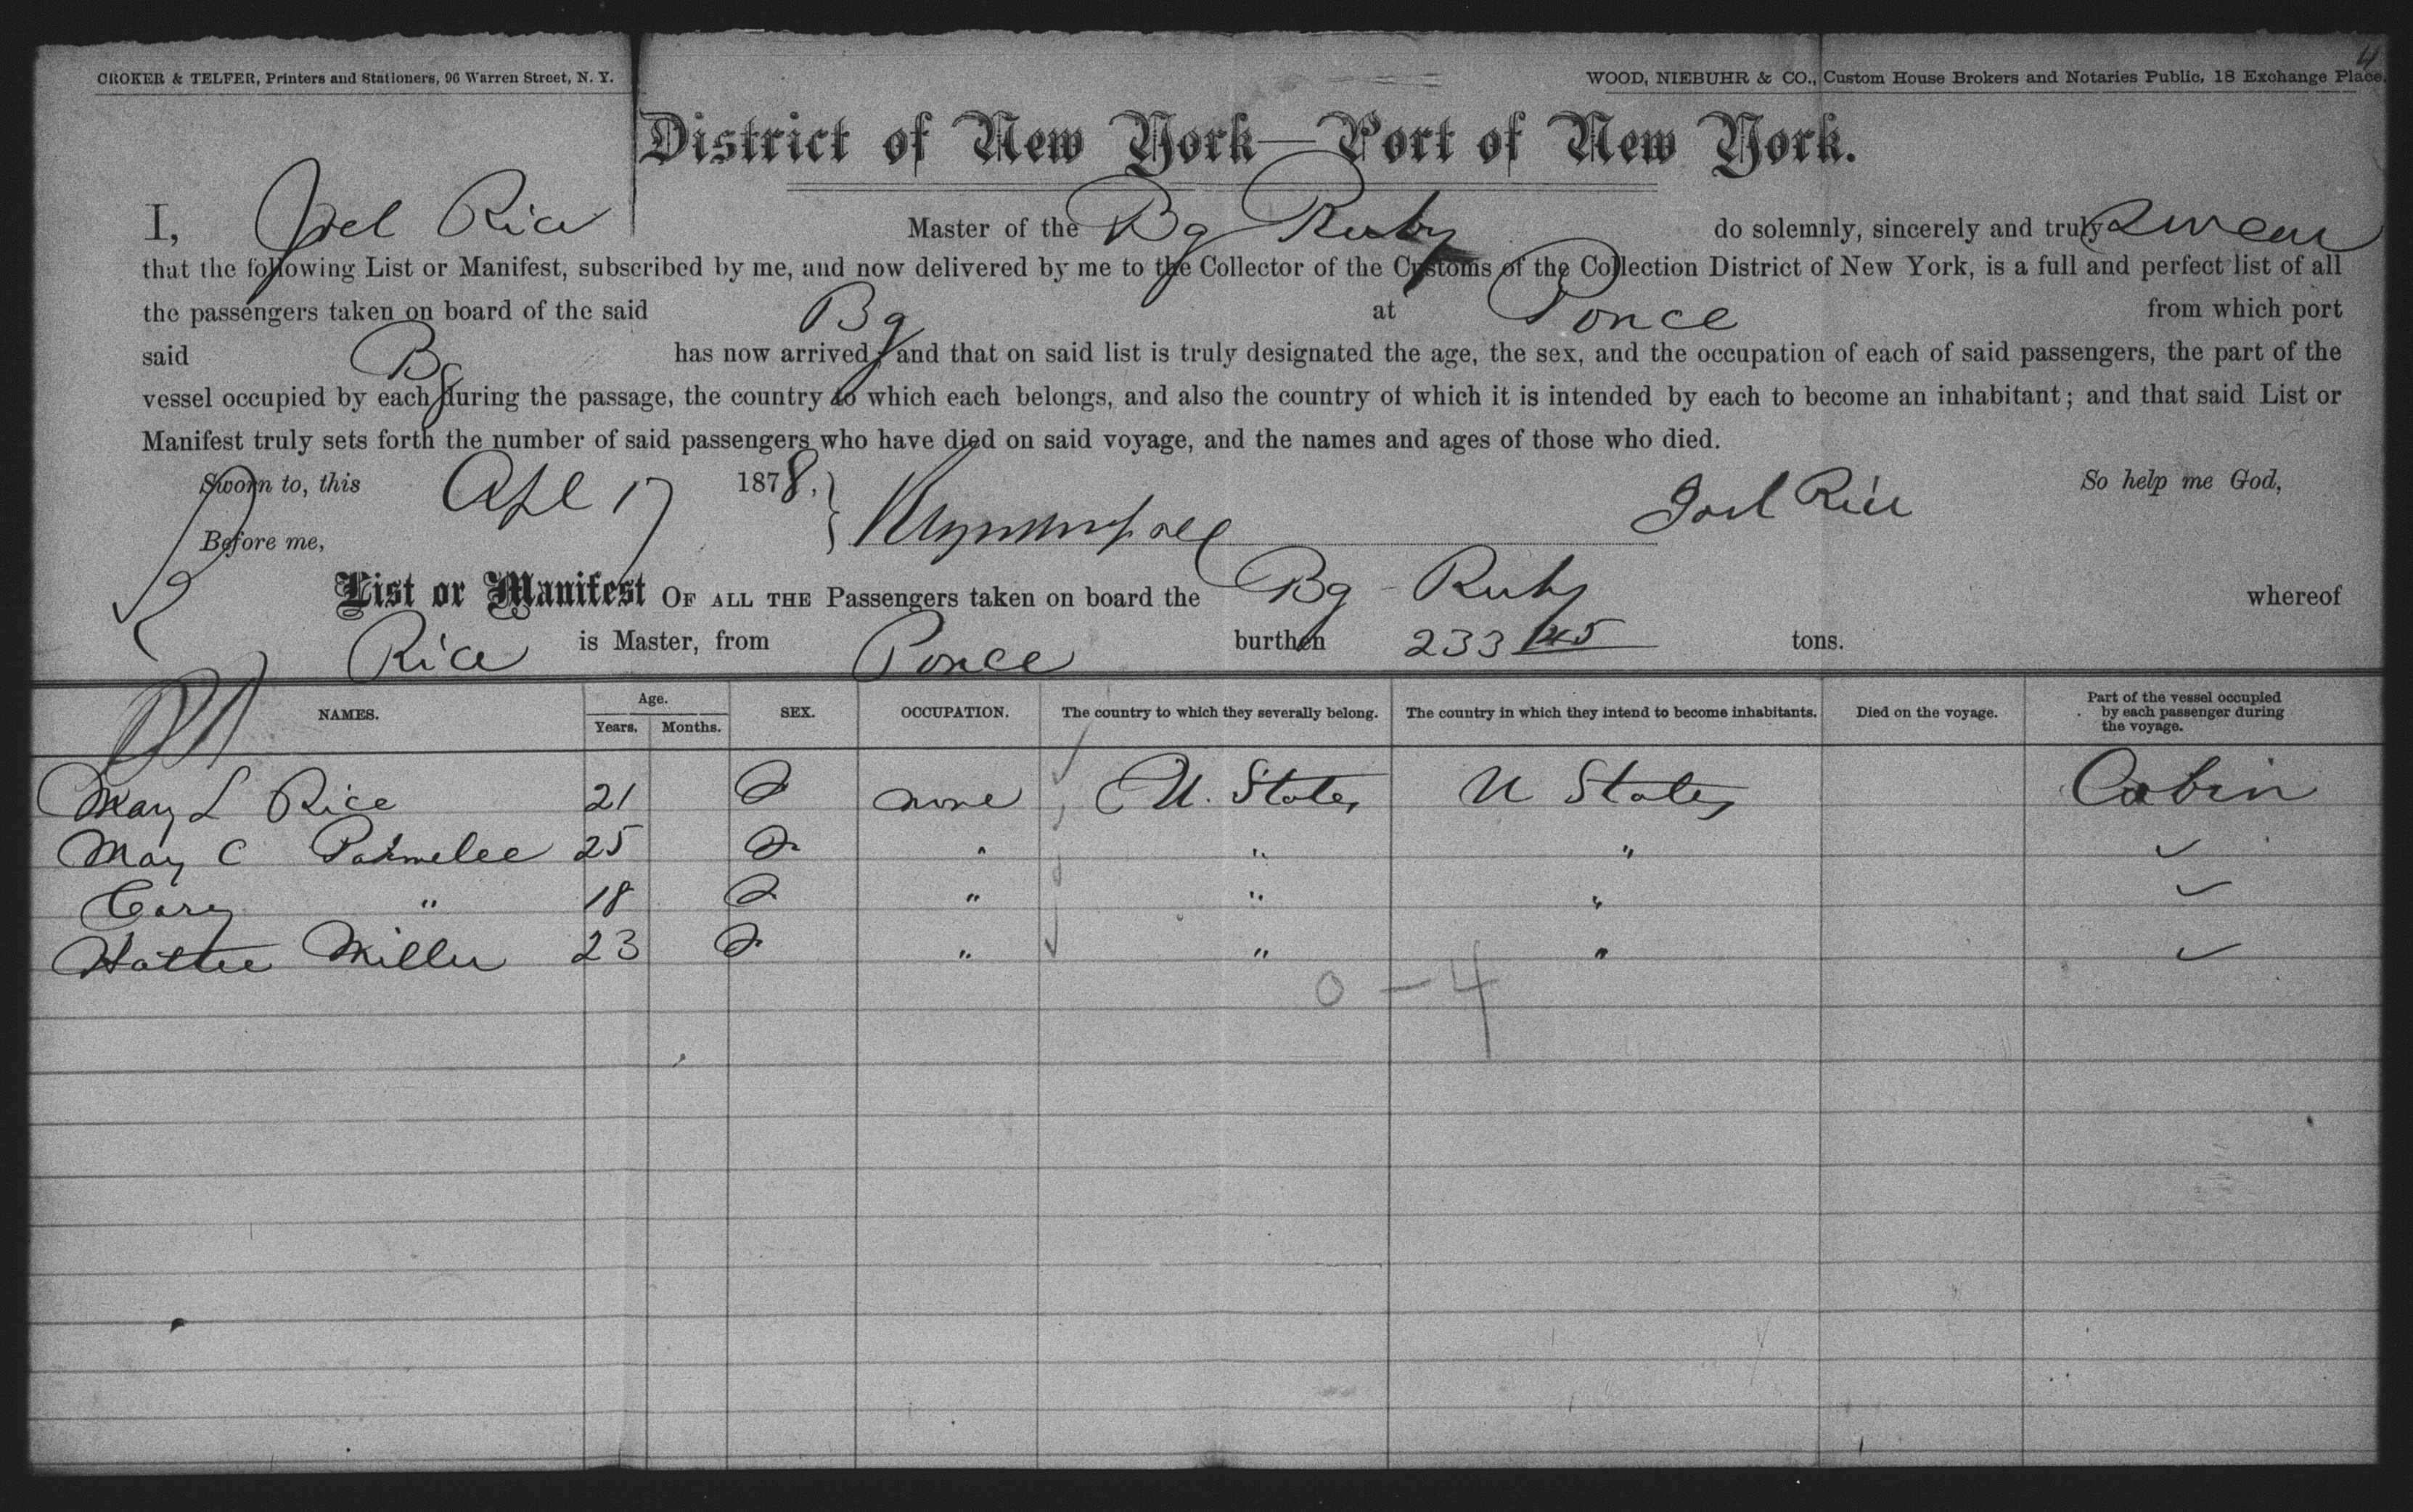 4
CROKER & TELFER, Printers and Stationers, 96 Warren Street, N. Y. WOOD, NIEBUHR & CO., Custom House Brokers and Notaries Public, 18 Exchange Place.
District of New York—Port of New York.
I, Joel Rice Master of the Bg Ruby do solemnly, sincerely and truly swear
that the following List or Manifest, subscribed by me, and now delivered by me to the Collector of the Customs of the Collection District of New York, is a full and perfect list of all
the passengers taken on board of the said Bg at Ponce from which port
said Bg has now arrived; and that on said list is truly designated the age, the sex, and the occupation of each of said passengers, the part of the
vessel occupied by each during the passage, the country to which each belongs, and also the country of which it is intended by each to become an inhabitant; and that said List or
Manifest truly sets forth the number of said passengers who have died on said voyage, and the names and ages of those who died.
Sworn to, this Apl 17 1878, Joel Rice So help me God,
Before me,
List or Manifest OF ALL THE Passengers taken on board the Bg Ruby whereof
Rice is Master, from Ponce burthen 233 tons.
NAMES. Age. Years. Months. SEX. OCCUPATION. The country to which they severally belong. The country in which they intend to become inhabitants. Died on the voyage. Part of the vessel occupied by each passenger during the voyage.
Mary L Rice 21 none U. States U States Cabin
May C Parmelee 25 " " " ✓
Cary " 18 " " " ✓
Hattie Miller 23 " " " ✓
0 - 4